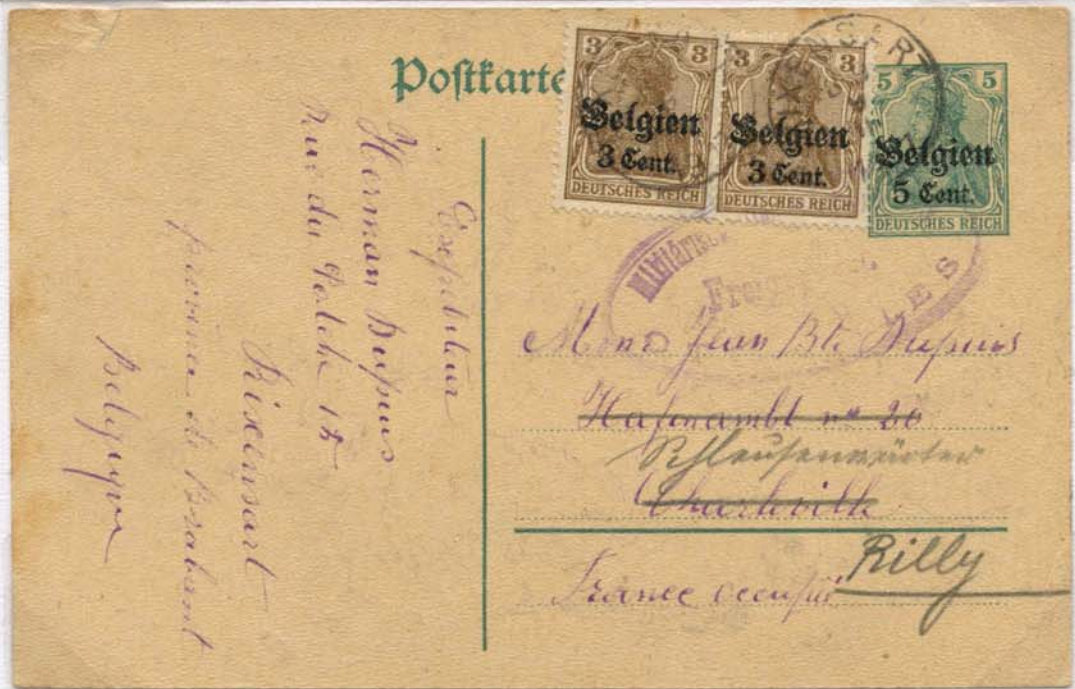 Postkarte
3 3
Belgien
3 Cent.
DEUTSCHES REICH
3 3
Belgien
3 Cent.
DEUTSCHES REICH
5 5
Belgien
5 Cent.
DEUTSCHES REICH
Militärisc
LES
Expéditeur
Herman Dupuis
Rue du 15
Rixensart
province de Brabant
Belgique
Jean Bte Dupuis
20
Schleusenwärter
Charleville
Rilly
France occupée